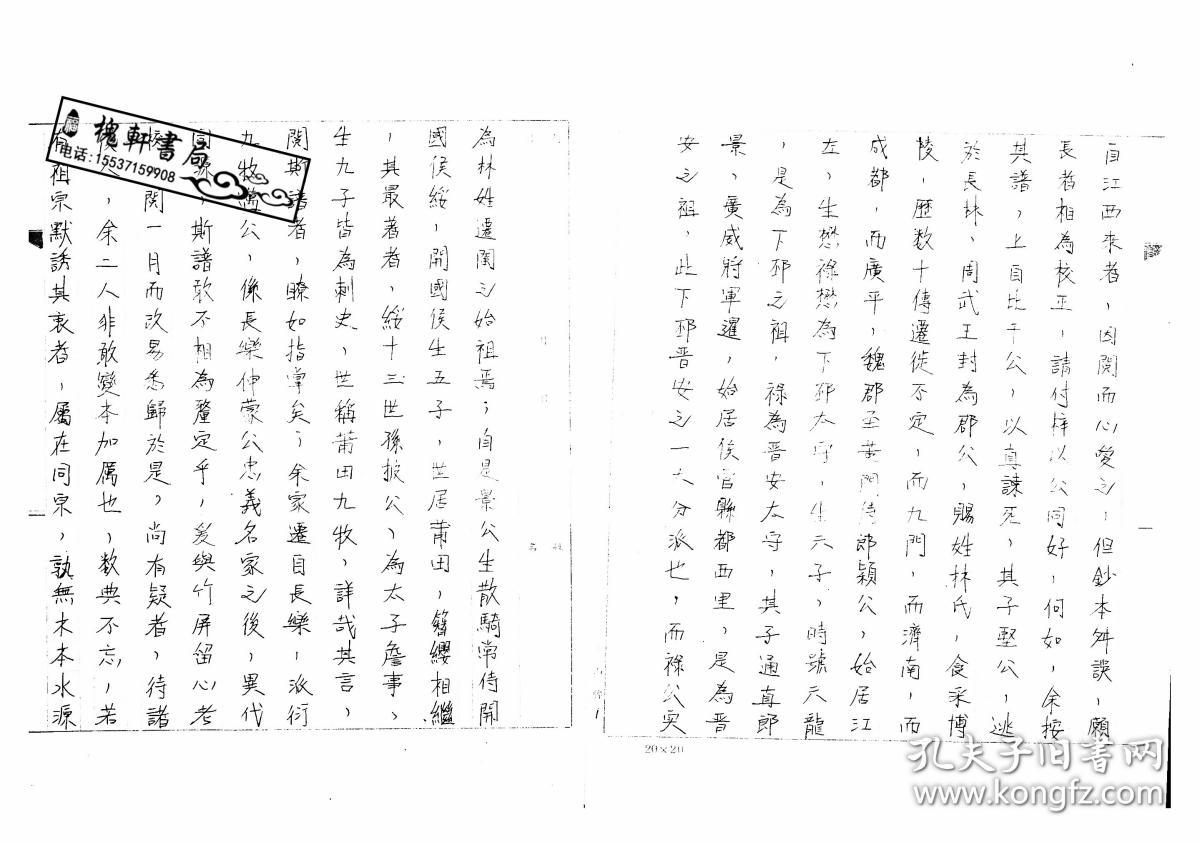 自江西來者，因閱而心愛之，但鈔本舛誤，願
長者相為校正，請付梓以公同好，何如，余按
其譜，上自比干公，以真諫死，其子堅公，逃
於長林，周武王封為郡公，賜姓林氏，食采博
陵，歷数十傳遷徙不定，而九門，而濟南，而
成都，而廣平，魏郡至黃門侍郎穎公，始居江
左，生懋祿懋為下邳太守，生六子，時號六龍
，是為下邳之祖，祿為晋安太守，其子通直郎
景，廣威將軍暹，始居侯官縣都西里，是為晋
安之祖，此下邳晋安之一大分派也，而祿公实
20×20
為林姓遷閩之始祖焉；自是景公生散騎常侍開
國侯綏，開國侯生五子，世居莆田，簪纓相繼
，其最著者，綏十三世孫披公，為太子詹事，
生九子皆為刺史，世稱莆田九牧，詳哉其言，
閱斯譜者，瞭如指掌矣；余家遷自長樂，派衍
九牧 公，係長樂仲蒙公忠義名家之後，異代
同 ，斯譜敢不相為釐定乎，爰與竹屏留心考
校 閱一月而改易悉歸於是，尚有疑者，待諸
後人，余二人非敢變本加厲也，数典不忘，若
有祖宗默誘其衷者，屬在同宗，孰無木本水源
槐軒書局
电话：15537159908
孔夫子旧书网
www.kongfz.com